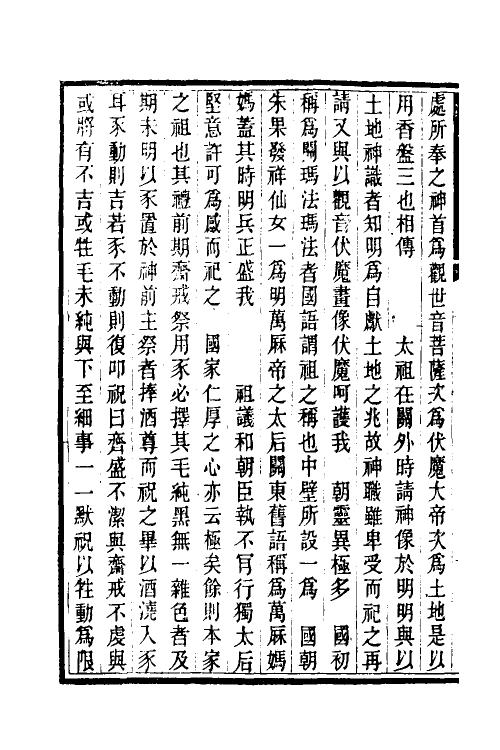 處所奉之神首爲觀世音菩薩次爲伏魔大帝次爲土地是以
用香盤三也相傳　　　太祖在關外時請神像於明明與以
土地神識者知明爲自獻土地之兆故神職雖卑受而祀之再
請又與以觀音伏魔畫像伏魔呵護我　朝靈異極多　國初
稱爲關瑪法瑪法者國語謂祖之稱也中壁所設一爲　國朝
朱果發祥仙女一爲明萬厤帝之太后關東舊語稱爲萬厤媽
媽蓋其時明兵正盛我　　　祖議和朝臣執不肎行獨太后
堅意許可爲感而祀之　國家仁厚之心亦云極矣餘則本家
之祖也其禮前期齋戒祭用豕必擇其毛純黑無一雜色者及
期未明以豕置於神前主祭者捧酒尊而祝之畢以酒澆入豕
耳豕動則吉若豕不動則復叩祝曰齊盛不潔與齋戒不虔與
或將有不吉或牲毛未純與下至細事一一默祝以牲動爲限